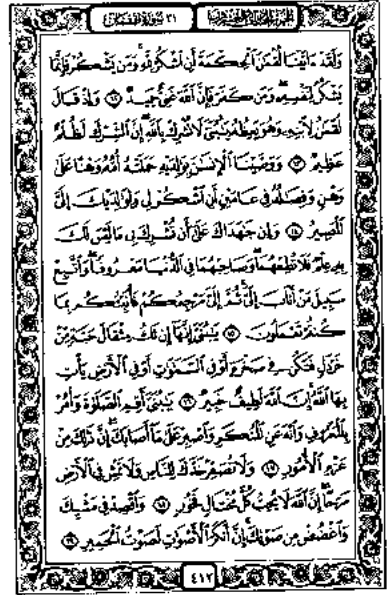 ٣١ سورة لقمان
وَلَقَدْ ءَاتَيْنَا لُقْمَٰنَ ٱلْحِكْمَةَ أَنِ ٱشْكُرْ لِلَّهِ وَمَن يَشْكُرْ فَإِنَّمَا
يَشْكُرُ لِنَفْسِهِۦ وَمَن كَفَرَ فَإِنَّ ٱللَّهَ غَنِىٌّ حَمِيدٌ ١٢ وَإِذْ قَالَ
لُقْمَٰنُ لِٱبْنِهِۦ وَهُوَ يَعِظُهُۥ يَٰبُنَىَّ لَا تُشْرِكْ بِٱللَّهِ إِنَّ ٱلشِّرْكَ لَظُلْمٌ
عَظِيمٌ ١٣ وَوَصَّيْنَا ٱلْإِنسَٰنَ بِوَٰلِدَيْهِ حَمَلَتْهُ أُمُّهُۥ وَهْنًا عَلَىٰ
وَهْنٍ وَفِصَٰلُهُۥ فِى عَامَيْنِ أَنِ ٱشْكُرْ لِى وَلِوَٰلِدَيْكَ إِلَىَّ
ٱلْمَصِيرُ ١٤ وَإِن جَٰهَدَاكَ عَلَىٰٓ أَن تُشْرِكَ بِى مَا لَيْسَ لَكَ
بِهِۦ عِلْمٌ فَلَا تُطِعْهُمَا وَصَاحِبْهُمَا فِى ٱلدُّنْيَا مَعْرُوفًا وَٱتَّبِعْ
سَبِيلَ مَنْ أَنَابَ إِلَىَّ ثُمَّ إِلَىَّ مَرْجِعُكُمْ فَأُنَبِّئُكُم بِمَا
كُنتُمْ تَعْمَلُونَ ١٥ يَٰبُنَىَّ إِنَّهَآ إِن تَكُ مِثْقَالَ حَبَّةٍ مِّنْ
خَرْدَلٍ فَتَكُن فِى صَخْرَةٍ أَوْ فِى ٱلسَّمَٰوَٰتِ أَوْ فِى ٱلْأَرْضِ يَأْتِ
بِهَا ٱللَّهُ إِنَّ ٱللَّهَ لَطِيفٌ خَبِيرٌ ١٦ يَٰبُنَىَّ أَقِمِ ٱلصَّلَوٰةَ وَأْمُرْ
بِٱلْمَعْرُوفِ وَٱنْهَ عَنِ ٱلْمُنكَرِ وَٱصْبِرْ عَلَىٰ مَآ أَصَابَكَ إِنَّ ذَٰلِكَ مِنْ
عَزْمِ ٱلْأُمُورِ ١٧ وَلَا تُصَعِّرْ خَدَّكَ لِلنَّاسِ وَلَا تَمْشِ فِى ٱلْأَرْضِ
مَرَحًا إِنَّ ٱللَّهَ لَا يُحِبُّ كُلَّ مُخْتَالٍ فَخُورٍ ١٨ وَٱقْصِدْ فِى مَشْيِكَ
وَٱغْضُضْ مِن صَوْتِكَ إِنَّ أَنكَرَ ٱلْأَصْوَٰتِ لَصَوْتُ ٱلْحَمِيرِ ١٩
٤١٢